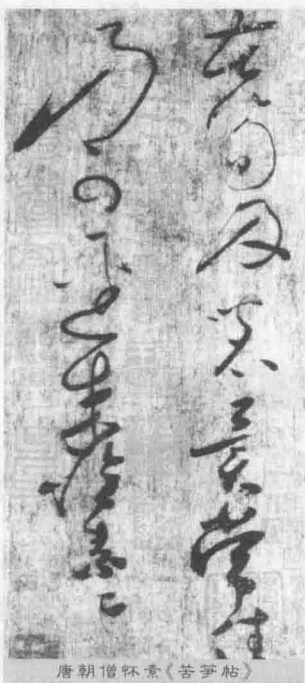 苦笋及茗異常佳
乃可逕来懷素上
唐朝僧怀素《苦笋帖》